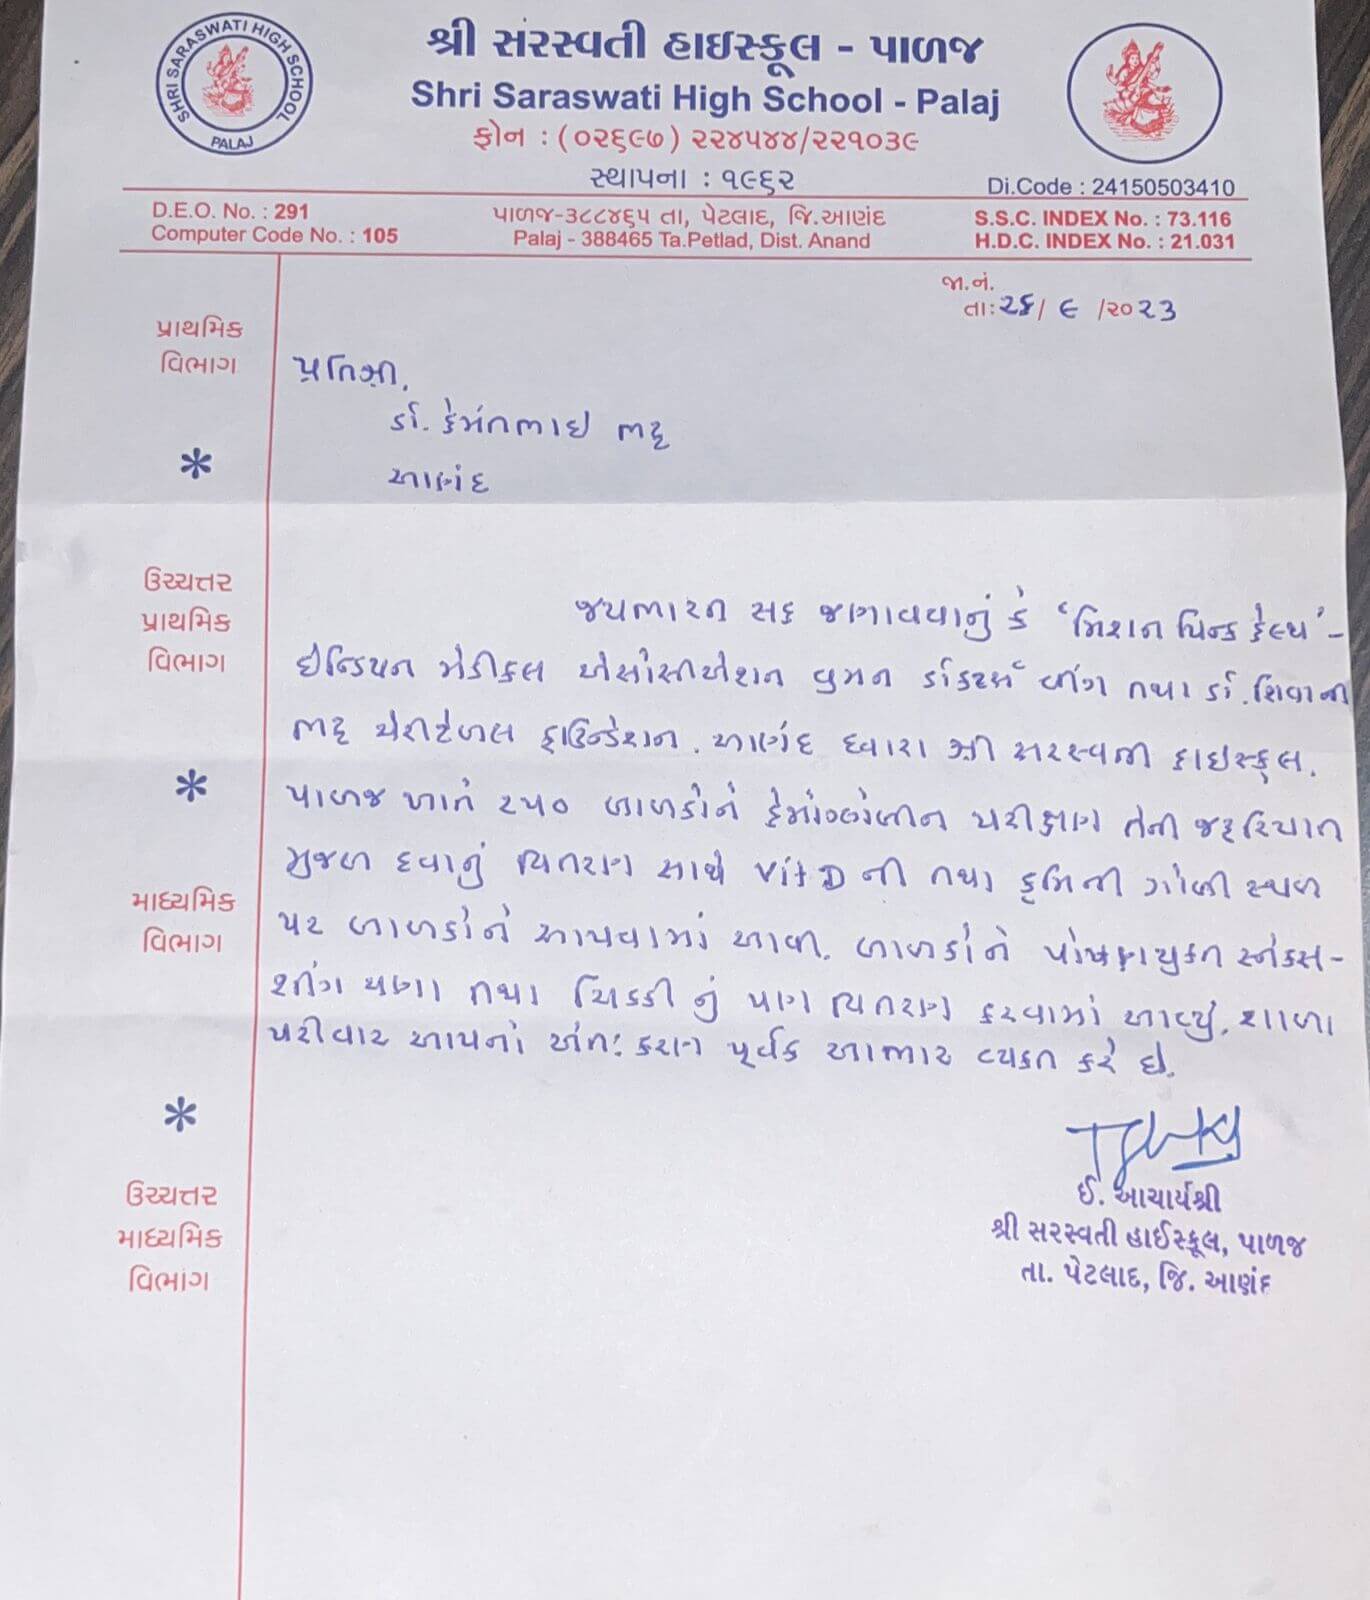 SHRI SARASWATI HIGH SCHOOL
PALAJ
શ્રી સરસ્વતી હાઇસ્કૂલ - પાળજ
Shri Saraswati High School - Palaj
ફોન : (૦૨૬૯૭) ૨૨૪૫૪૪/૨૨૧૦૩૯
સ્થાપના : ૧૯૬૨
Di.Code : 24150503410
D.E.O. No. : 291
Computer Code No. : 105
પાળજ-૩૮૮૪૬૫ તા, પેટલાદ, જિ.આણંદ
Palaj - 388465 Ta.Petlad, Dist. Anand
S.S.C. INDEX No. : 73.116
H.D.C. INDEX No. : 21.031
જા.નં.
તા:૨૬/ ૯ /૨૦૨૩
પ્રાથમિક
વિભાગ
પ્રતિશ્રી,
ડૉ. હેમંતભાઇ ભટ્ટ
આણંદ
ઉચ્ચત્તર
પ્રાથમિક
વિભાગ
જયભારત સહ જણાવવાનું કે 'મિશન પિન્ક હેલ્થ' -
ઇન્ડિયન મેડીકલ એસોસીએશન વુમન ડૉકટર્સ વીંગ તથા ડૉ. શિવાની
ભટ્ટ ચેરીટેબલ ફાઉન્ડેશન. આણંદ દ્વારા શ્રી સરસ્વતી હાઇસ્કુલ.
પાળજ ખાતે ૨૫૦ બાળકોને હેમોગ્લોબીન પરીક્ષણ તેની જરૂરિયાત
મુજબ દવાનું વિતરણ સાથે Vit D ની તથા કૃમિની ગોળી સ્થળ
પર બાળકોને આપવામાં આવી. બાળકોને પોષણયુક્ત સ્નેકસ -
શીંગ ચણા તથા ચિક્કી નું પણ વિતરણ કરવામાં આવ્યું. શાળા
પરીવાર આપનો અંતઃકરણ પૂર્વક આભાર વ્યક્ત કરે છે.
માધ્યમિક
વિભાગ
ઉચ્ચત્તર
માધ્યમિક
વિભાગ
ઈ. આચાર્યશ્રી
શ્રી સરસ્વતી હાઈસ્કૂલ, પાળજ
તા. પેટલાદ, જિ. આણંદ